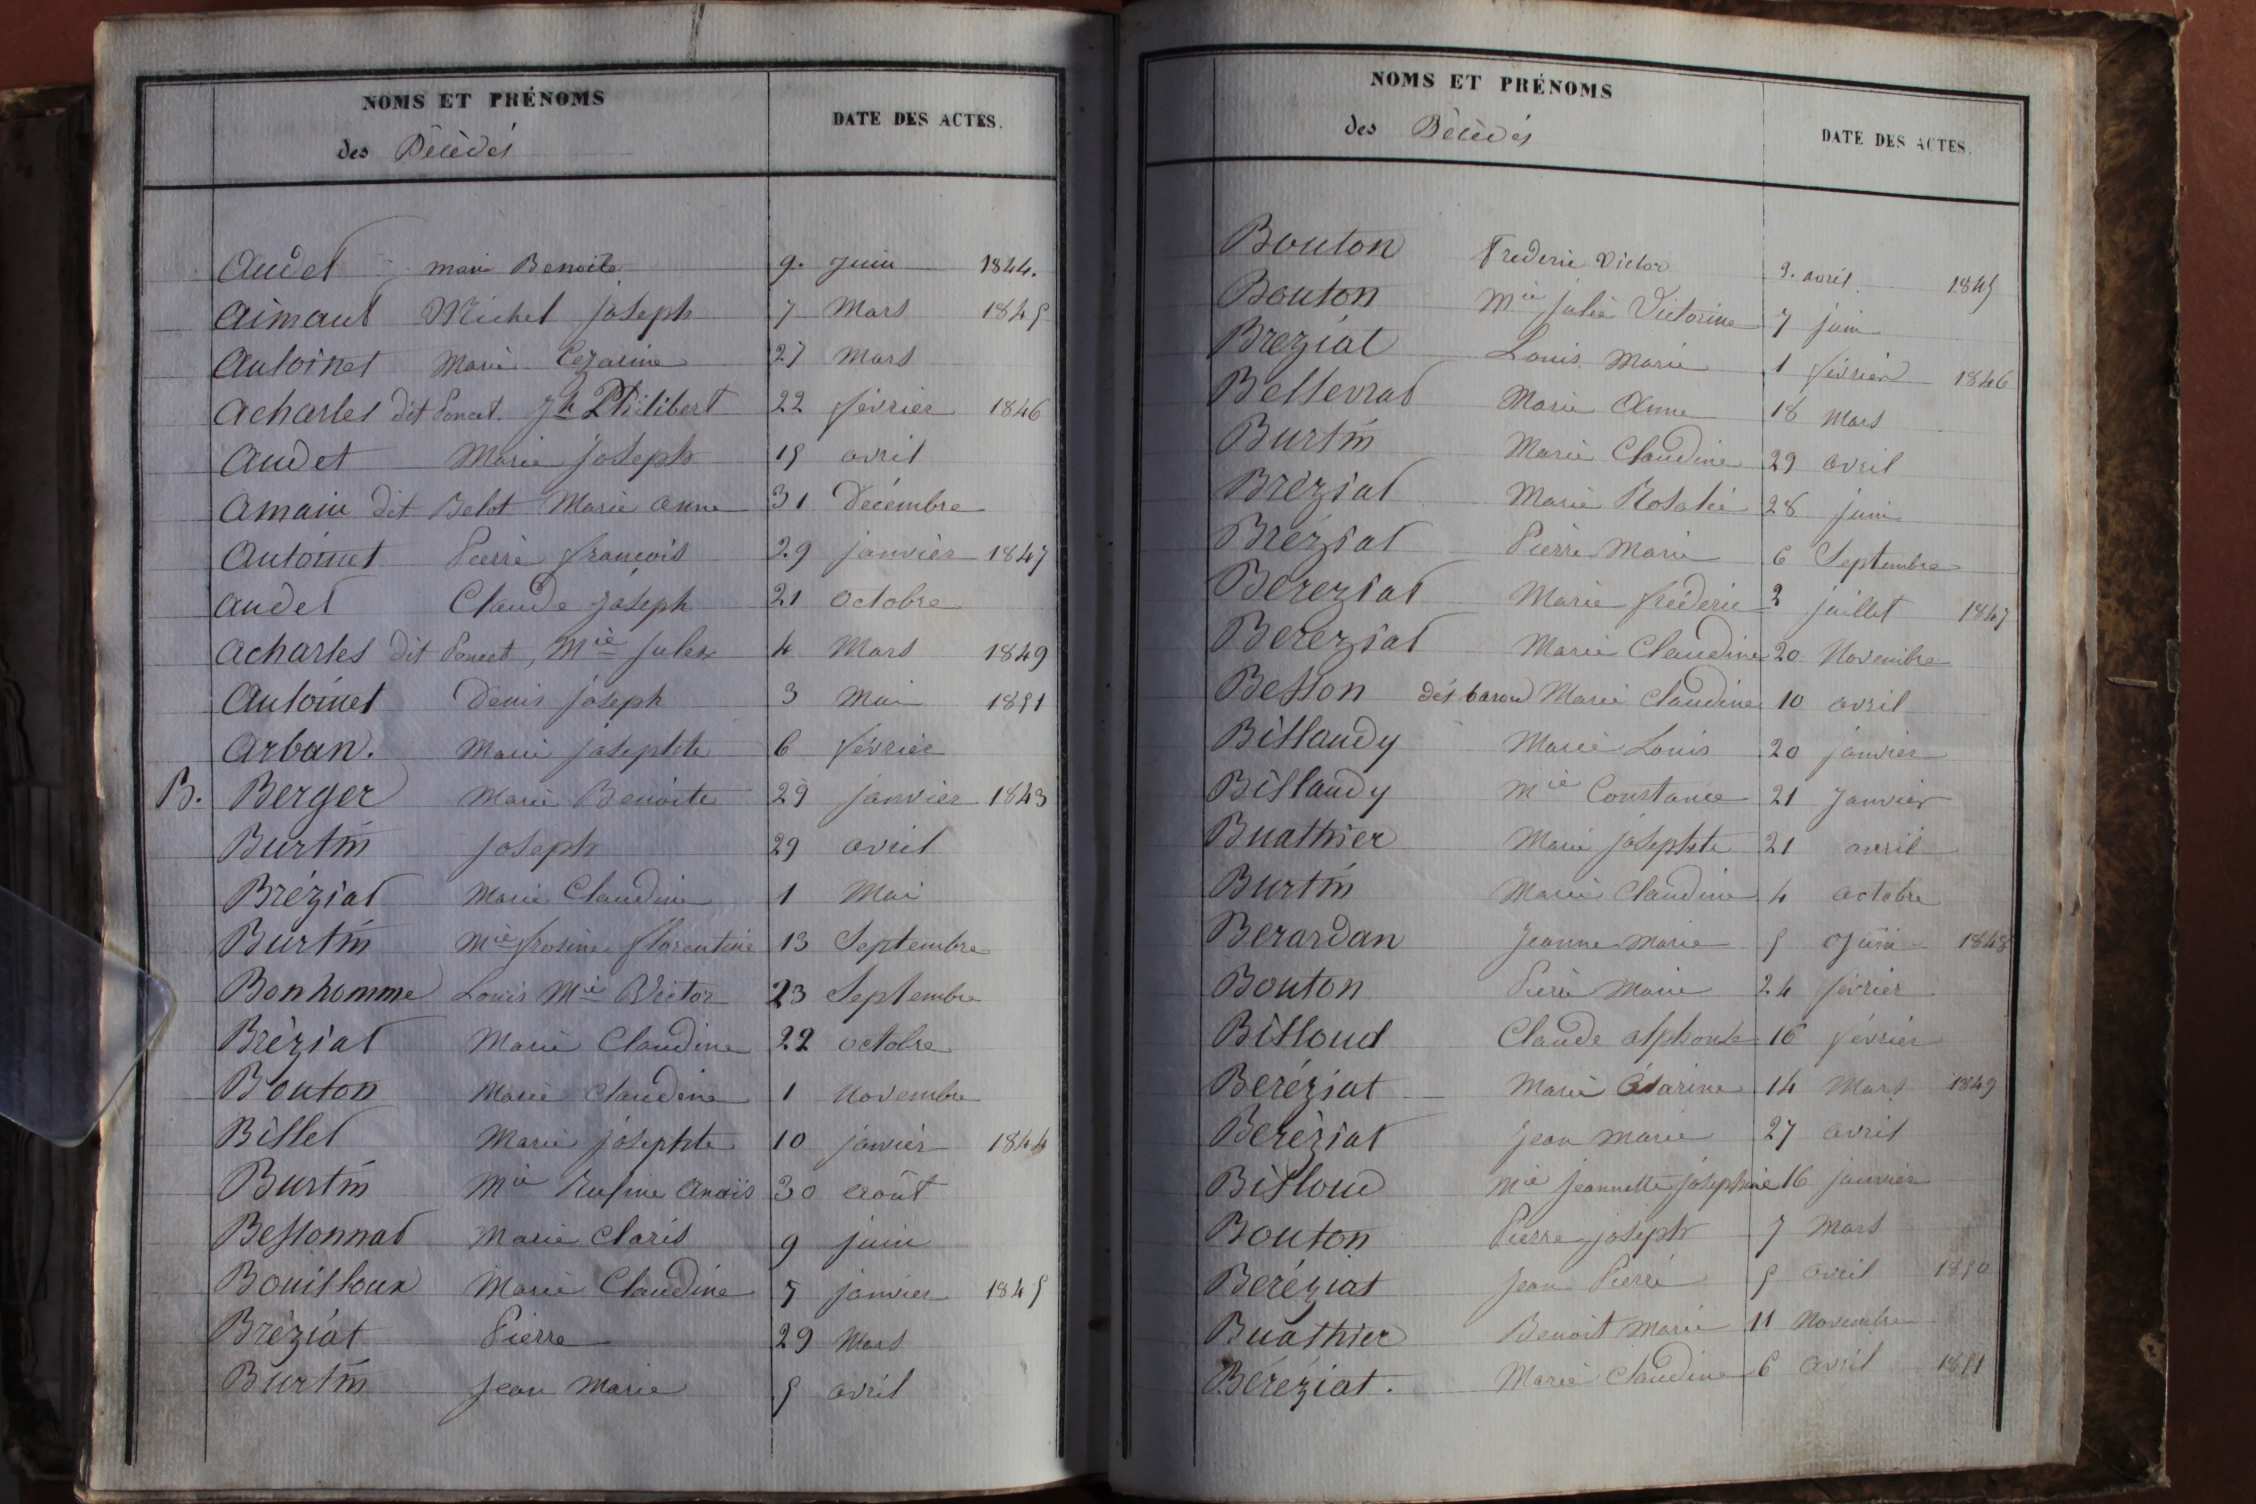 NOMS ET PRÉNOMS
des Décèdés
DATE DES ACTES.
Audet marie Benoite 9. juin 1844.
Aimaut Michel joseph 7 Mars 1845
Antoinet Marie Cezarine 27 Mars
Acharles dit Poncet Jh Philibert 22 février 1846
Audet Marie Joseph 15 avril
Amain dit Belot Marie anne 31 Decembre
Antoinet Pierre françois 29 janvier 1847
Audet Claude joseph 21 octobre
Acharles dit Poncet, Mie Jules 4 Mars 1849
Antoinet Denis joseph 3 Mai 1851
Arban. Marie josephte 6 février
B. Berger Marie Benoite 29 janvier 1843
Burtin joseph 29 avril
Bréziat Marie Claudine 1 Mai
Burtin Mie frosine florentine 13 Septembre
Bonhomme Louis Mie Victor 23 Septembre
Bréziat Marie Claudine 22 octobre
Bouton Marie claudine 1 Novembre
Billet Marie josephte 10 janvier 1844
Burtin Mie Rufine Anaïs 30 août
Bessonnat Marie Claris 9 juin
Bouilloux Marie Claudine 7 janvier 1845
Bréziat Pierre 29 Mars
Burtin Jean Marie 5 avril
NOMS ET PRÉNOMS
des Décèdés
DATE DES ACTES.
Bouton Frederic Victor 9. avril 1845
Bouton Mie Julie Victorine 7 juin
Breziat Louis Marie 1 février 1846
Bellevrat Marie Anne 18 Mars
Burtin Marie Claudine 29 avril
Bréziat Marie Rosalie 28 juin
Bréziat Pierre Marie 6 Septembre
Bereziat Marie fréderic 2 juillet 1847
Bereziat Marie Claudine 20 Novembre
Besson dit baron Marie Claudine 10 avril
Billaudy Marie Louis 20 janvier
Billaudy Mie Constance 21 Janvier
Buathier Marie josephte 21 avril
Burtin Marie Claudine 4 octobre
Berardan Jeanne Marie 5 1848
Bouton Pierre Marie 24 février
Billoud Claude alphonse 16 février
Beréziat Marie Césarine 14 Mars 1849
Beréziat Jean Marie 27 avril
Billoud Mie Jeannette josephine 16 janvier
Bouton Pierre joseph 7 Mars
Beréziat Jean Pierre 5 avril 1850
Buathier Benoit Marie 11 Novembre
Béréziat. Marie Claudine 6 avril 1851